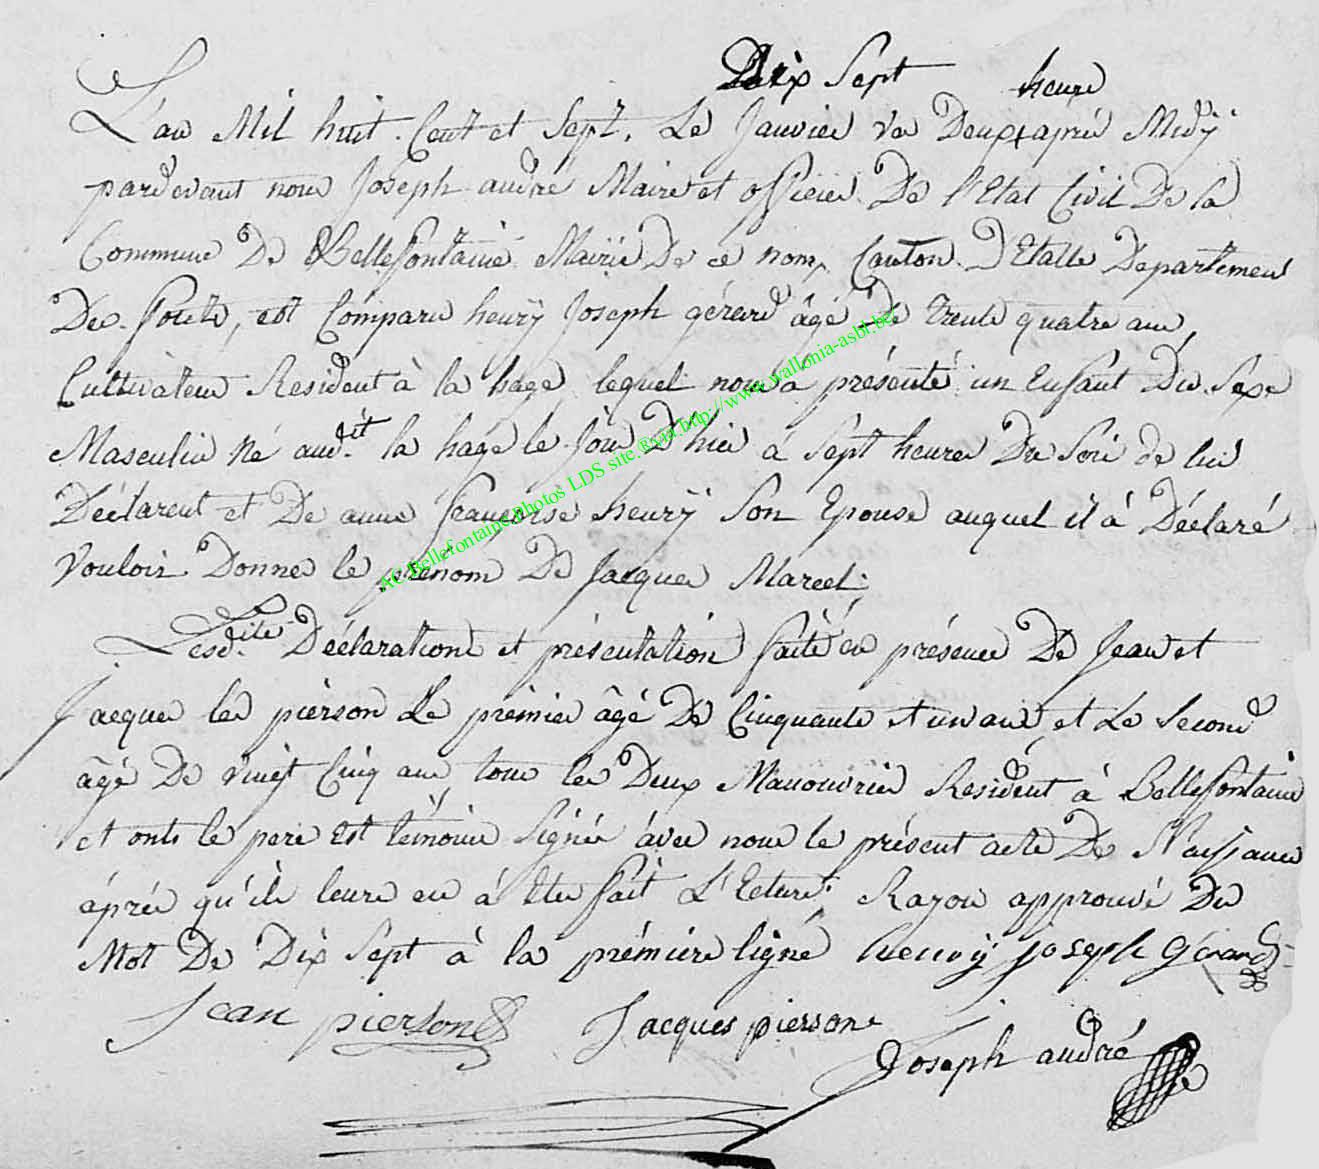 Dix Sept heure
L'an Mil huit Cent et Sept, Le Janvier vers Deux après Midÿ
pardevant nous Joseph andré Maire et officier De l'Etat Civil De la
Commune De Bellefontaine Mairie De ce nom, Canton D'Etalle Departement
Des forêts, est Comparu henrÿ Joseph gérard âgé De trente quatre ans,
Cultivateur Resident à la hage lequel nous a présenté un Enfant Du Sexe
Masculin né audit la hage le jour D'hier à Sept heures Du Soir de lui
Déclarent et De anne françoise henrÿ Son Epouse auquel il à Déclaré
Vouloir Donner le prénom De Jacques Marcel,
Lesdite Déclarations et présentation faite en présence De Jean et
Jacques les pierson Le prémier âgé De Cinquante et un ans, et Le Second
âgé De vingt Cinq ans, tous les Deux Manouvrier Resident à Bellefontaine
et onts le pere est témoins Signé avec nous le présent acte De Naissance
áprés qu'ils leurs en á Etes fait L'Ecture. Rayon approuvé Du
Mot De Dix Sept à la prémiere ligne henry joseph Gérard
Jean pierson Jacques pierson
Joseph andré
AC Bellefontaine photos LDS site. Extr.http://www.wallonia-asbl.be